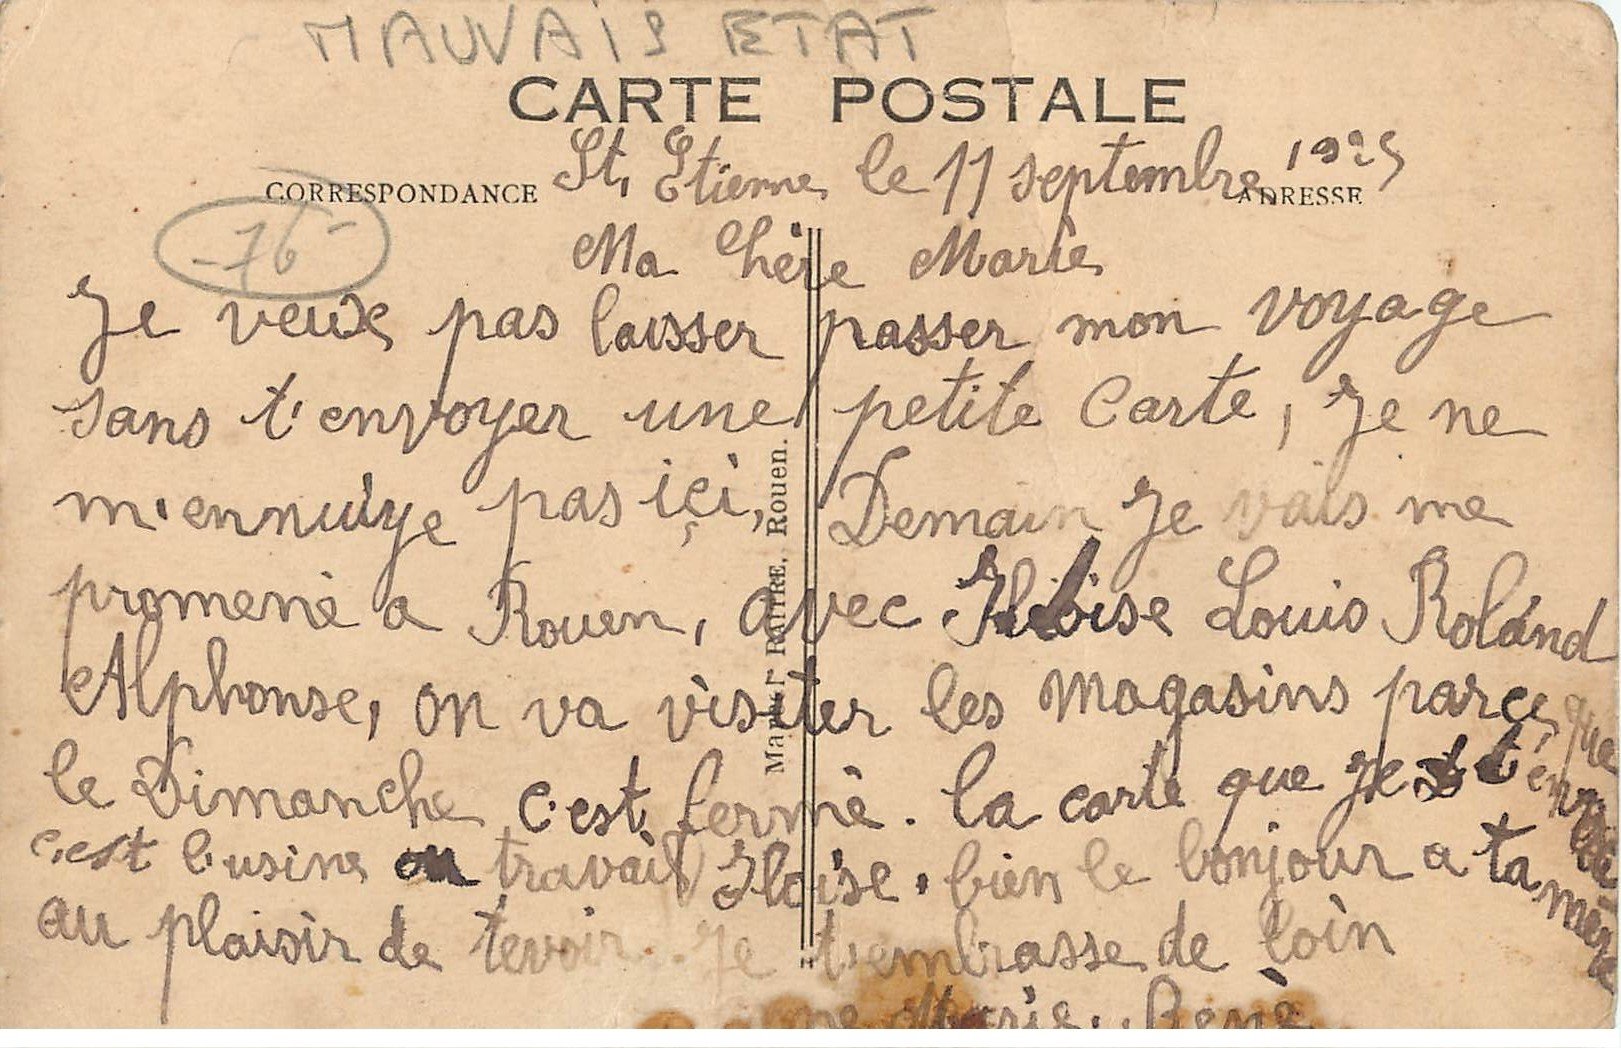 MAUVAIS ETAT
CARTE POSTALE
CORRESPONDANCE
ADRESSE
-76-
St. Etienne le 11 septembre 1925
Ma Chère Marie
Je veuxe pas laisser passer mon voyage
sans t'envoyer une petite Carte, Je ne
m'ennuiye pas içi, Demain Je vais me
promené a Rouen, avec Iloise Louis Roland
Alphonse, on va visiter les magasins parçe que
le Dimanche c'est fermè. la carte que Je t'envoie
c'est l'usine ou travail Iloise. bien le bonjour a ta mère
au plaisir de tevoir. Je t'embrasse de loin
Marie. Renè
Rouen.